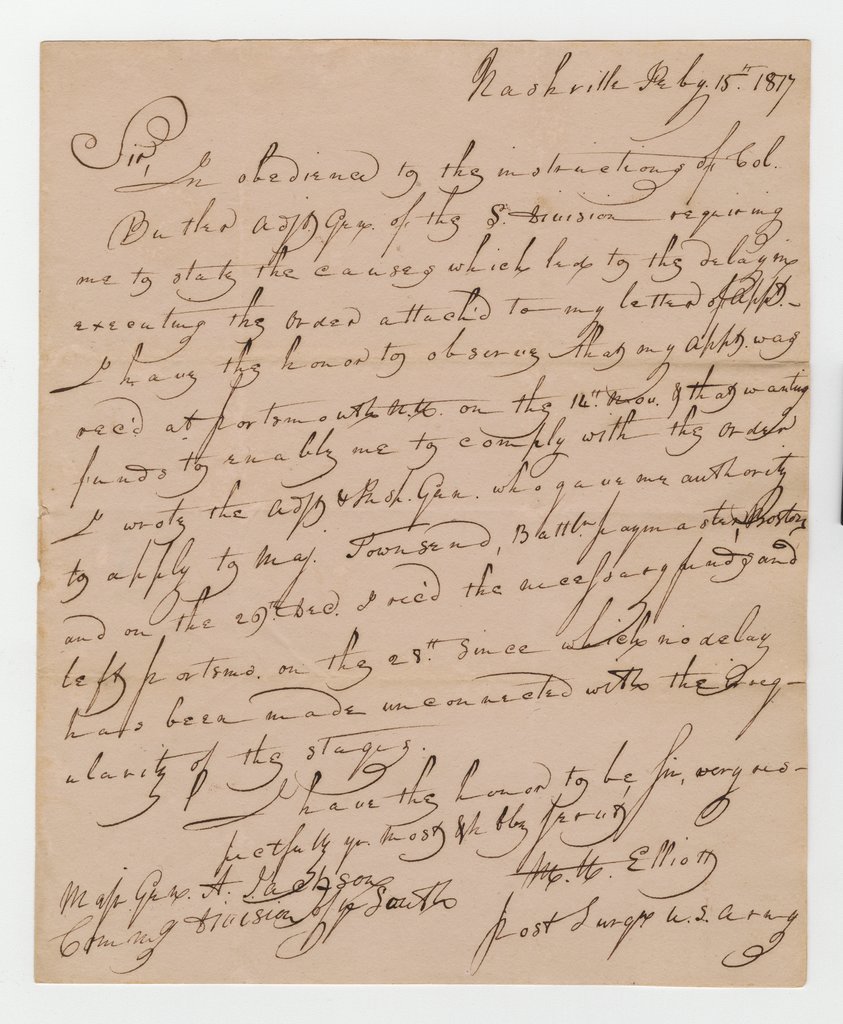 Nashville Feby. 15th. 1817
Sir,
In obedience to the instructions of Col.
Butler Adjt. Gen. of the S. Division requiring
me to state the causes which led to the delay in
executing the order attach'd to my letter of appt.
I have the honor to observe that my appt. was
rec'd at Portsmouth N.H. on the 14th. Nov. & that wanting
funds to enable me to comply with the order
I wrote the Adjt. & Insp. Gen. who gave me authority
to apply to Maj. Townsend, Battn. paymaster, Boston
and on the Dec. I rec'd the necessary funds and
left Portsmo. on the 28th. Since which no delay
has been made unconnected with the irreg-
ularity of the stages.
I have the honor to be Sir, very res-
pectfully yr. most hbl servt
Elliott
Majr Gen. A. Jackson
Commg Division of ye South
post Surgn U.S. Army